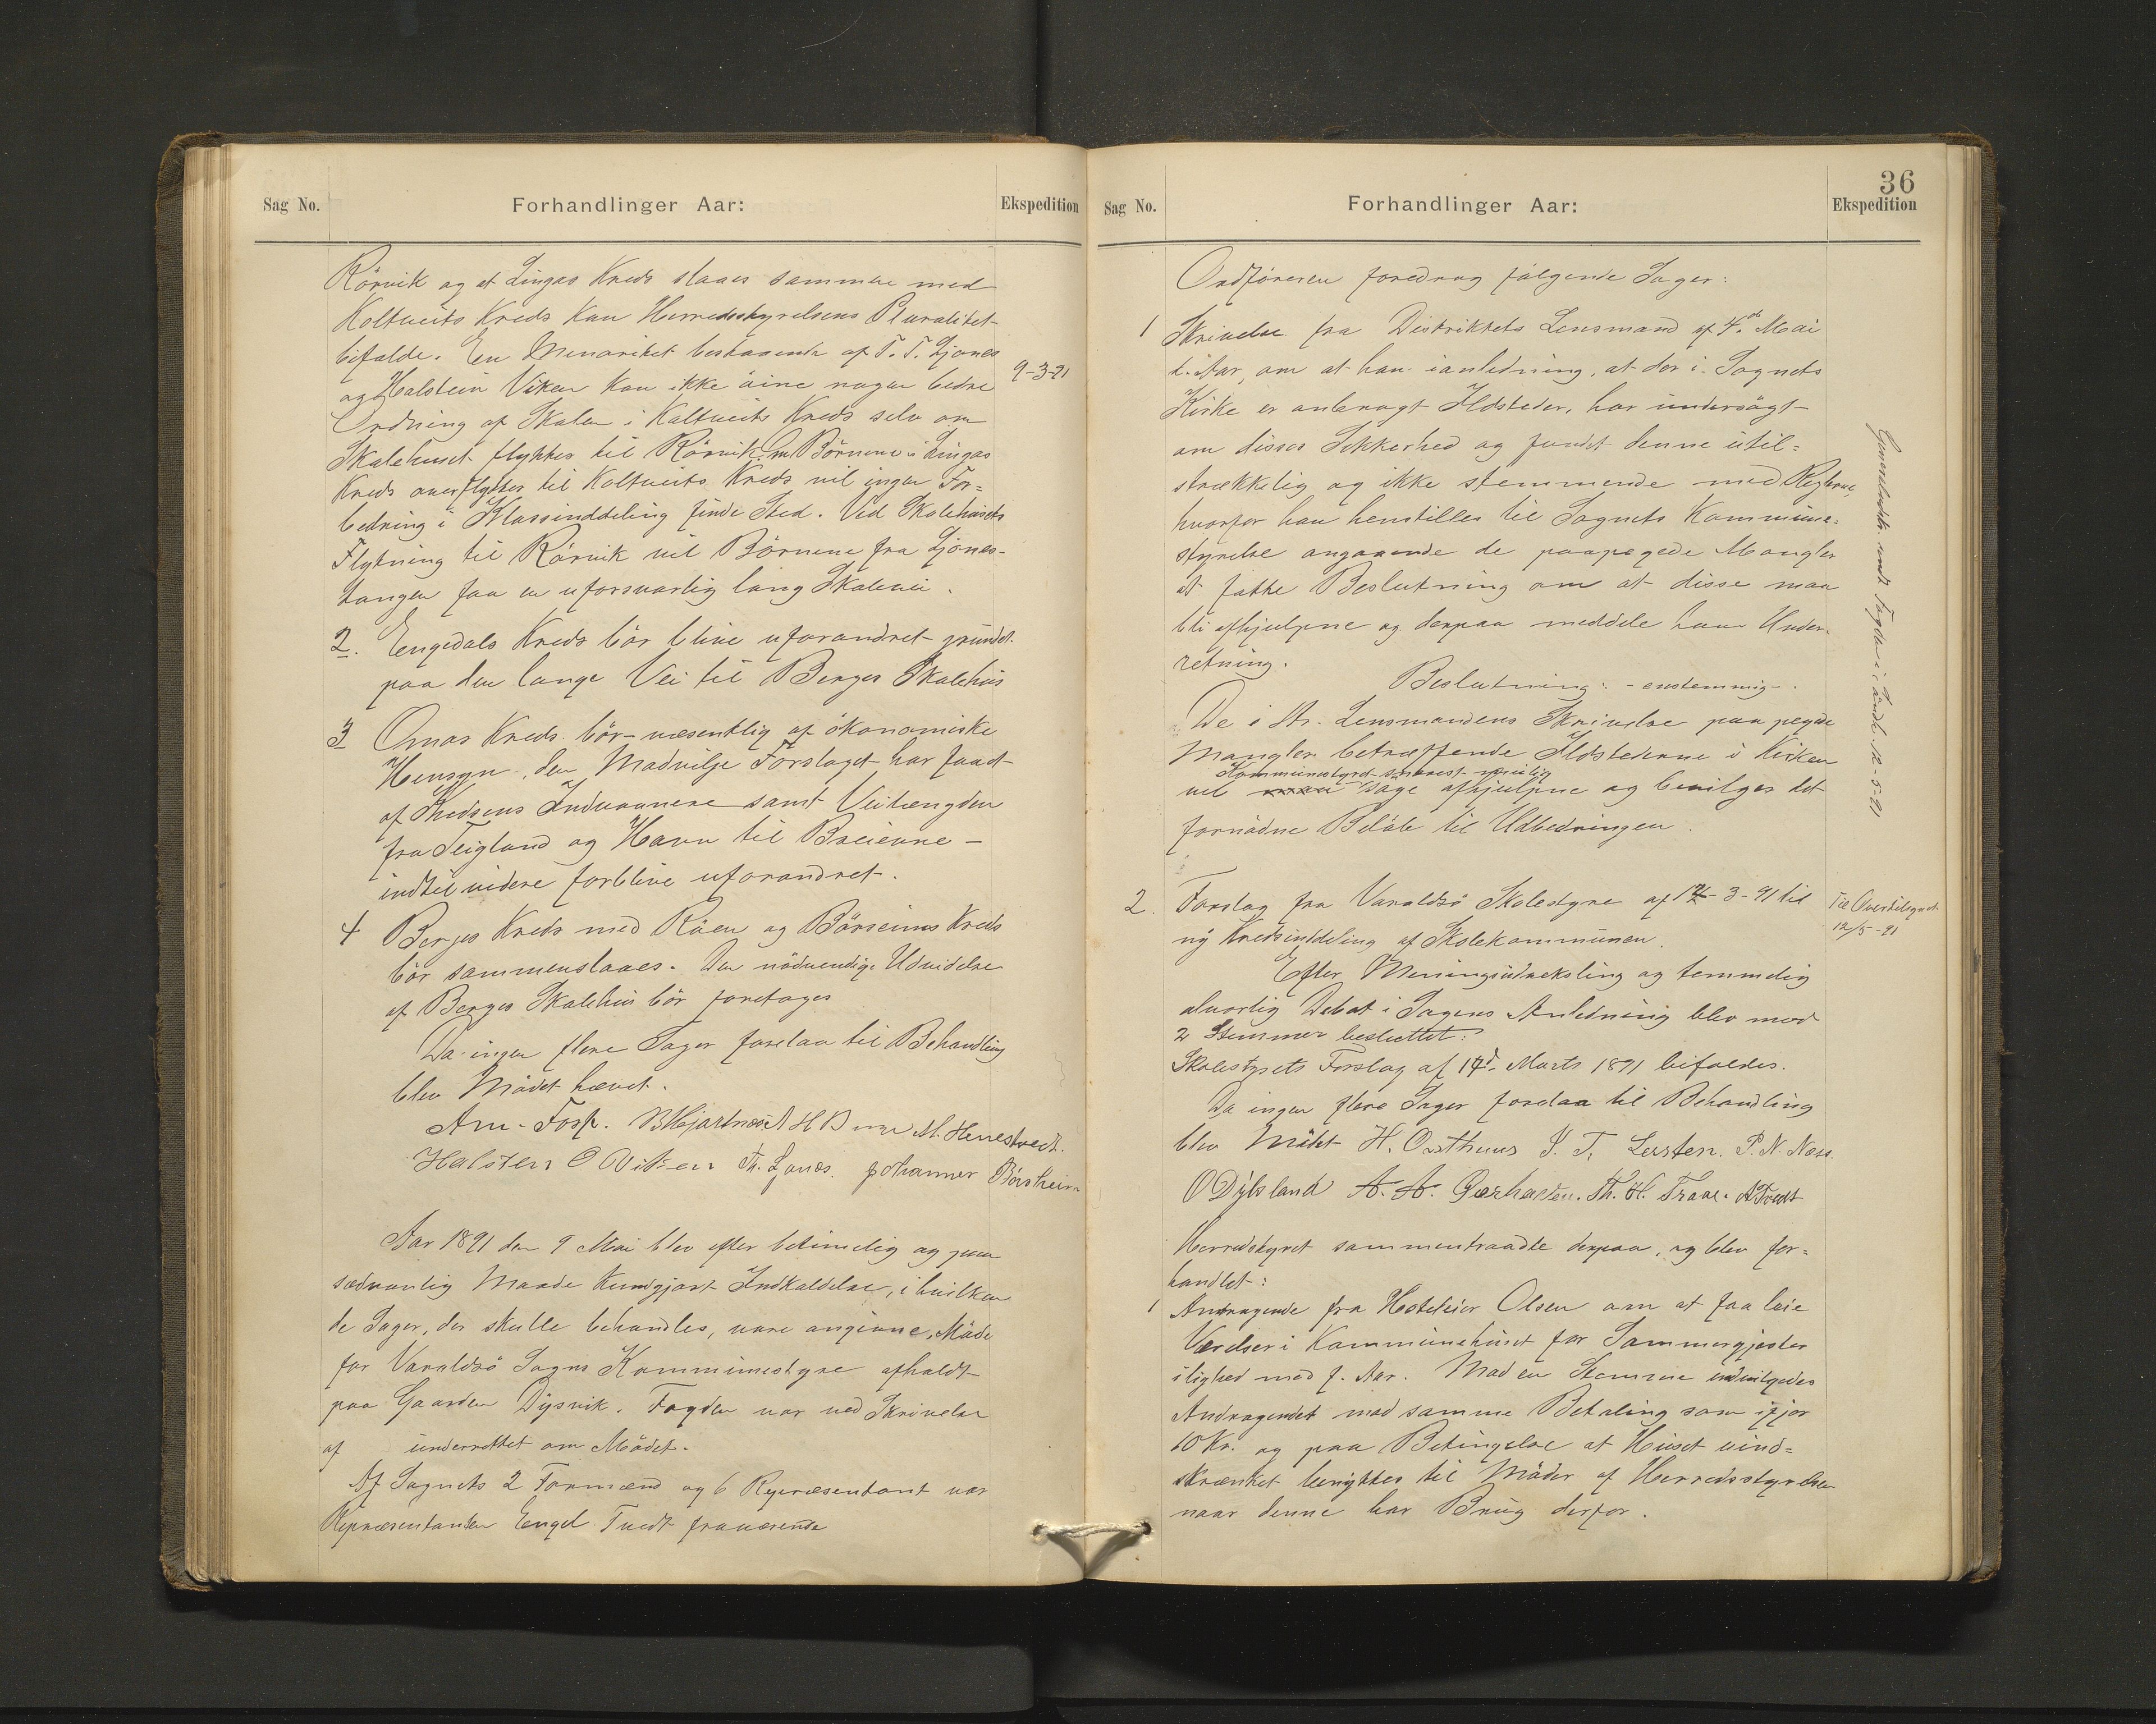 Sag No.
Forhandlinger Aar:
Ekspedition
Rörvik og at Lingas Kreds slaaes sammen med
Koltveits Kreds kan Herredsstyrelsens Pluralitet
bifalde. En Menoritet bestaaende af T. T. Ljones
og Halstein Viken kan ikke öine nogen bedre
9-3-91
Ordning af Skolen i Koltveits Kreds selv om
Skolehuset flyttes til Rörvik. Om Börnene i Lingas
Kreds overflyttes til Koltveits Kreds vil ingen For=
bedring i Klasseinddeling finde Sted. Ved Skolehusets
Flytning til Rörvik vil Börnene fra Ljones-
tangen faa en uforsvarlig lang Skolevei.
2. Engedals Kreds bör blive uforandret grundet
paa den lange Vei til Berges Skolehus
3 Omas Kreds bör - væsentlig af ökonomiske
Hensyn, den Modvilje Forslaget har faaet
af Kredsens Indvaanere samt Veilængden
fra Teigland og Havn til Breierne -
indtil videre forblive uforandret.
4 Berges Kreds med Röen og Börseims Kreds
bör sammenslaaes. Den nödvendige Udvidelse
af Berges Skolehus bör foretages
Da ingen flere Sager forelaa til Behandling
blev Mödet hævet.
Am. Fosse. B Hjartnes A H B M. Herrestvedt.
Halsten O Viken Th. Ljones. Johannes Börsheim
Aar 1891 den 9 Mai blev efter betimelig og paa
sædvanlig Maade kundgjort Indkaldelse, i hvilken
de Sager, der skulle behandles, vare angivne, Möde
for Varaldsö Sogns Kommunestyre afholdt
paa Gaarden Dysvik. Fogden var ved Skrivelse
af underrettet om Mödet.
Af Sognets 2 Formænd og 6 Repræsentant var
Repræsentanten Engel Tvedt fraværende
36
Sag No.
Forhandlinger Aar:
Ekspedition
Ordföreren foredrog fölgende Sager:
1 Skrivelse fra Distriktets Lensmand af 4.de Mai
d. Aar, om at han i anledning, at der i Sognets
Kirke er anbragt Ildsteder, har undersögt
om disses Sikkerhed og fundet denne util=
strækkelig og ikke stemmende med Reglerne,
hvorfor han henstilles til Sognets Kommune=
styrelse angaaende de paapegede Mangler
at fatte Beslutning om at disse maa
bli afhjulpne og derpaa meddele ham Under=
retning.
Beslutning: - enstemmig -.
De i Hr. Lensmandens Skrivelse paapegede
Mangler betræffende Ildstederne i Kirken
Kommunestyret snarest muelig
vil söge afhjulpne og bevilges det
fornödne Belöb til Udbedringen.
Generelsekt. vedt Fogden i Sönde. 12-5-91
2. Forslag fra Varaldsö Skolestyre af 14-3-91 til
ny Kredsinddeling af Skolekommunen.
Til Overtilsynet
12/5-91
Efter Meningsudveksling og temmelig
alvorlig Debat i Sagens Anledning blev mod
2 Stemmer besluttet:
Skolestyrets Forslag af 14d. Marts 1891 bifaldes.
Da ingen flere Sager forelaa til Behandling
blev Mödet H. Opsthuus J. T. Lersten. P. N. Næss.
O Dybsland A. A. Gjerhavten. Th. H. Traae. A Tvedt
Herredstyret sammentraadte derpaa, og blev for=
handlet:
1 Andragende fra Hoteleier Olsen om at faa leie
Værelser i Kommunehuset for Sommergjester
i lighed med f. Aar. Mod en Stemme indvilgedes
Andragendet mod samme Betaling som ifjor
10 Kr. og paa Betingelse at Huset uind=
skrænket benyttes til Möder af Herredsstyrelsen
naar denne har Brug derfor.